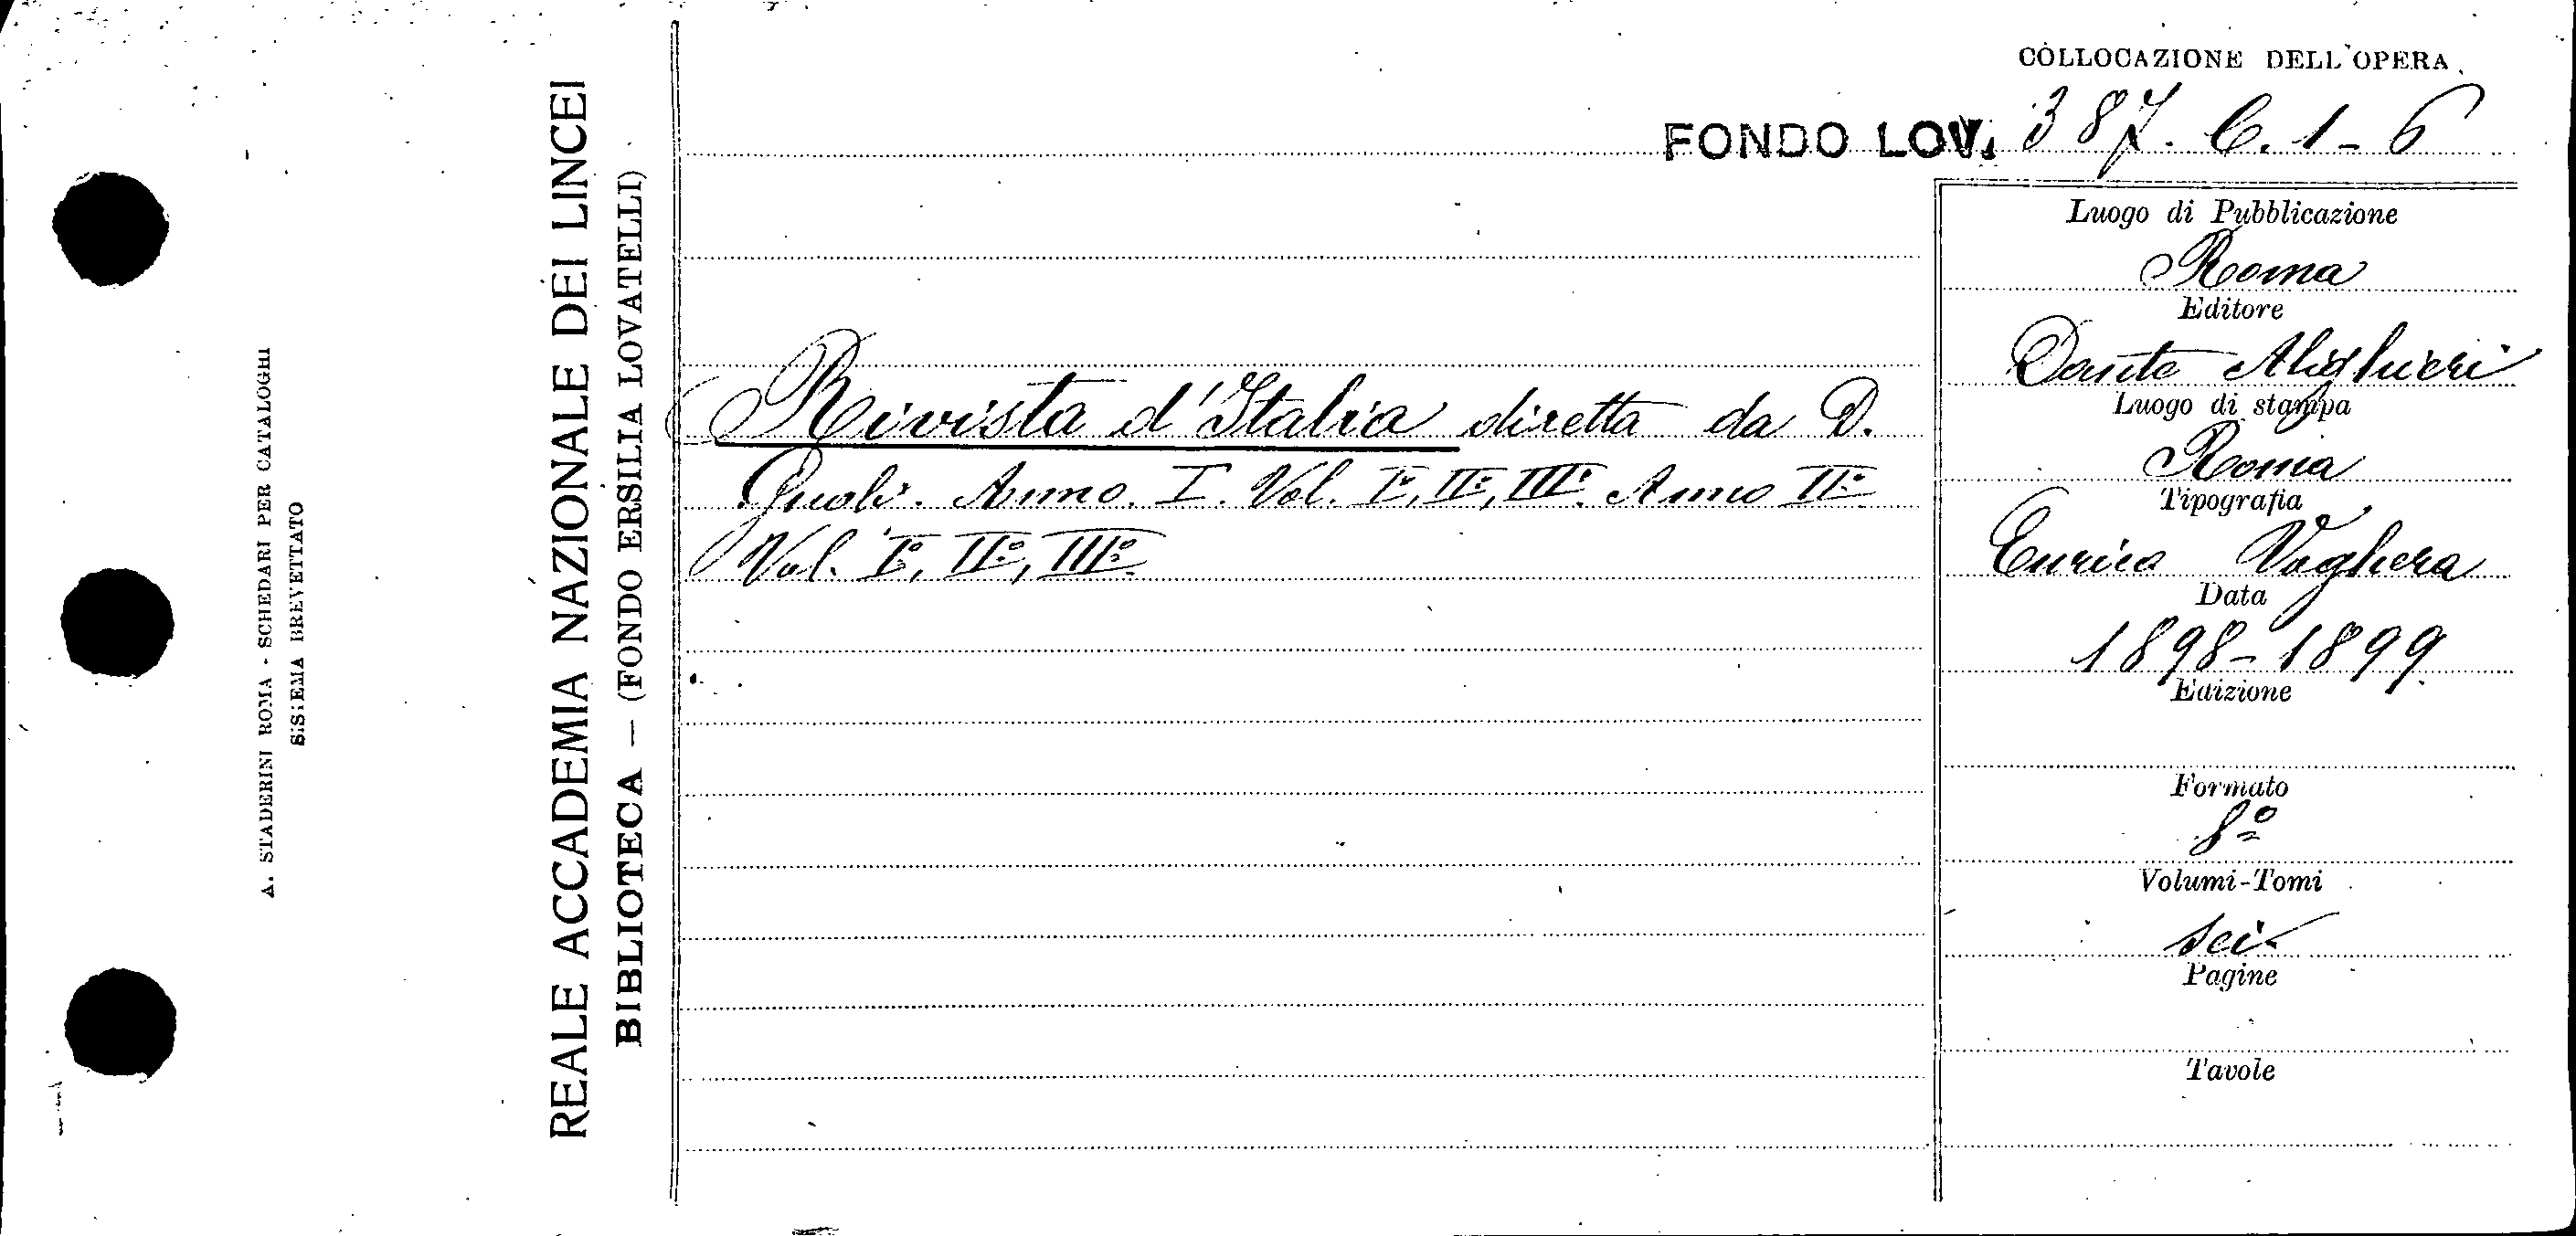 A. STADERINI ROMA - SCHEDARI PER CATALOGHI
SISTEMA BREVETTATO
REALE ACCADEMIA NAZIONALE DEI LINCEI
BIBLIOTECA — (FONDO ERSILIA LOVATELLI)
COLLOCAZIONE DELL'OPERA
FONDO LOV. 387. C. 1-6
Rivista d'Italia diretta da D.
Gnoli. Anno. I. Vol. Iº, IIº, IIIº. Anno IIº
Vol. Iº, IIº, IIIº.
Luogo di Pubblicazione
Roma
Editore
Dante Alighieri
Luogo di stampa
Roma
Tipografia
Enrico Voghera
Data
1898-1899.
Edizione
Formato
8º
Volumi-Tomi
sei.
Pagine
Tavole